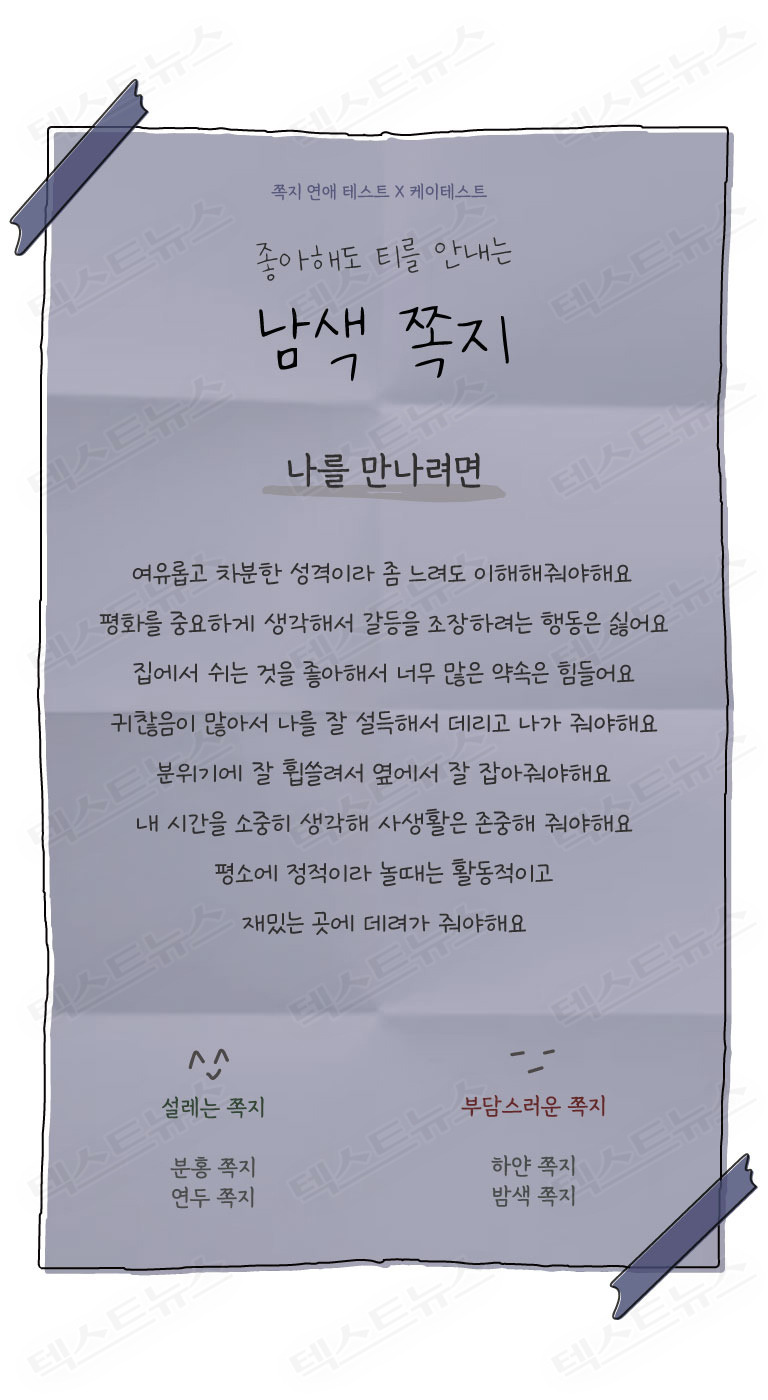 쪽지 연애 테스트 X 케이테스트
좋아해도 티를 안내는
남색 쪽지
나를 만나려면
여유롭고 차분한 성격이라 좀 느려도 이해해줘야해요
평화를 중요하게 생각해서 갈등을 조장하려는 행동은 싫어요
집에서 쉬는 것을 좋아해서 너무 많은 약속은 힘들어요
귀찮음이 많아서 나를 잘 설득해서 데리고 나가 줘야해요
분위기에 잘 휩쓸려서 옆에서 잘 잡아줘야해요
내 시간을 소중히 생각해 사생활은 존중해 줘야해요
평소에 정적이라 놀때는 활동적이고
재밌는 곳에 데려가 줘야해요
설레는 쪽지
분홍 쪽지
연두 쪽지
부담스러운 쪽지
하얀 쪽지
밤색 쪽지
텍스트뉴스